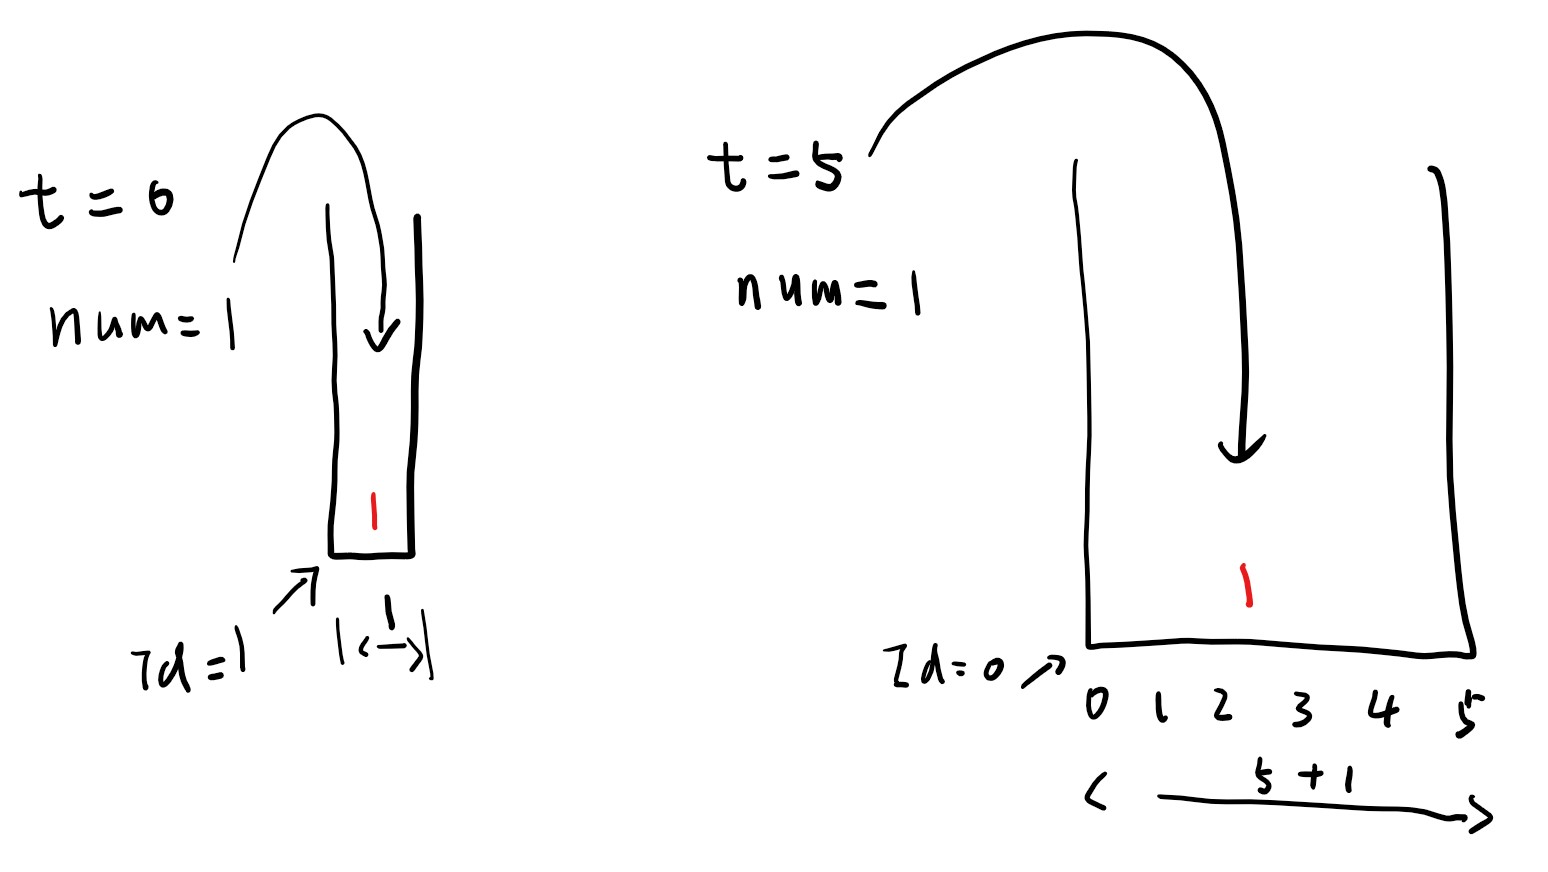 t = 0
num = 1
1
Id = 1
1
t = 5
num = 1
1
Id = 0
0 1 2 3 4 5
5 + 1